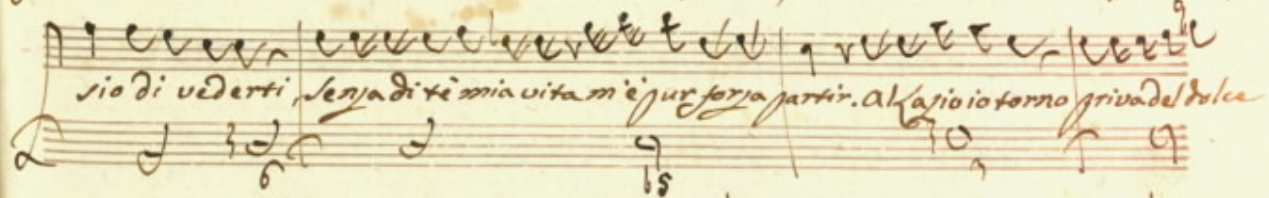 sio di vederti, senza di tè mia vita m'è pur forza partir. Al Lazio io torno priva del dolce
6
b5